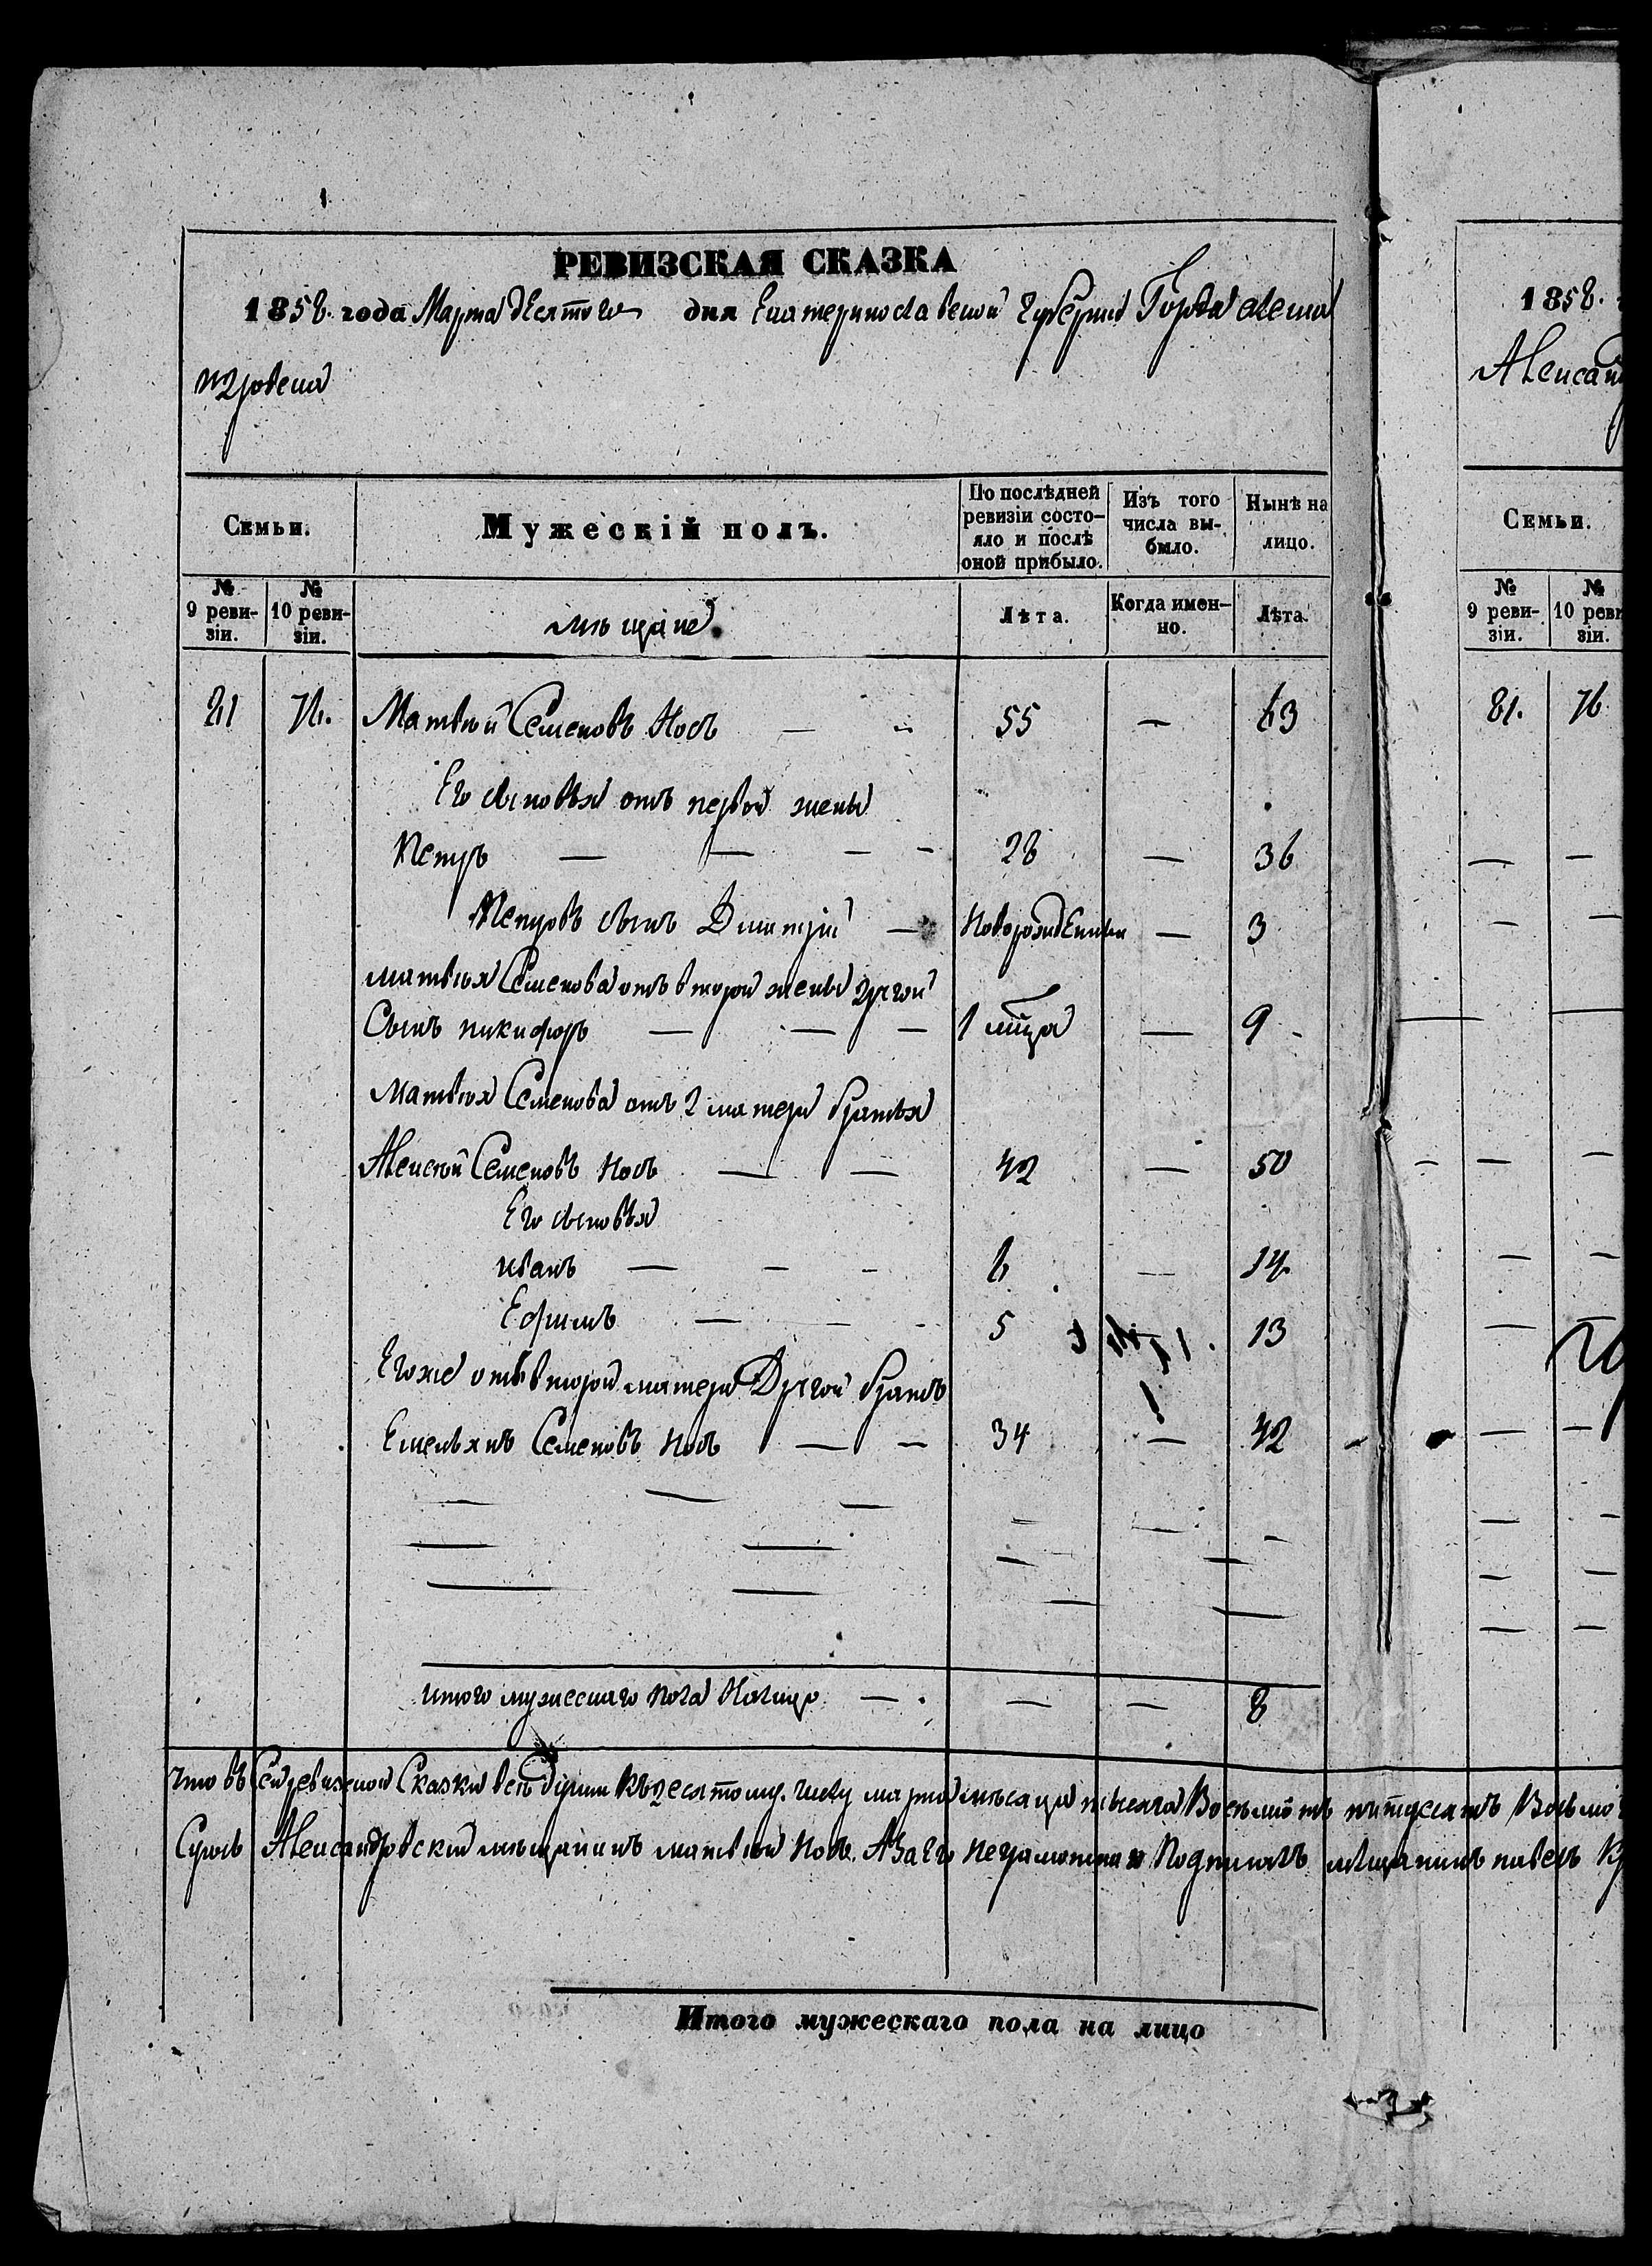 РЕВИЗСКАЯ СКАЗКА
1858. года Марта десятого дня Екатеринославской губернии Города Алекса
ндровска
Семьи.
Мужескій полъ.
По послѣдней ревизіи состо-
яло и послѣ
оной прибыло.
Изъ того
числа вы-
было.
Нынѣ на
лицо.
№
9 реви-
зіи.
№
10 реви-
зіи.
мѣщане
Лѣта.
Когда имен-
но.
Лѣта.
81 76. Матвѣй Семеновъ Носъ — - 55 — 63
Его сыновья отъ первой жены
Петръ — — — - 28 — 36
Петровъ сынъ Дмитрій — новорожденъ — 3
матвѣя Семенова отъ второй жены другой
Сынъ никифоръ — — — 1 мѣца — 9 -
Матвѣя Семенова отъ 2 матери братья
Алексѣй Семеновъ носъ — — 42 — 50
Его сыновья
иванъ — - - 6 — 14.
Ефимъ — - - 5 13
Его же отъ второй матери Другой братъ
Емельянъ Семеновъ носъ — - 34 — 42
итого мужескаго пола налицо — - — — 8
что въ Сей ревизской Сказки всѣ души къ десятому числу марта мѣсяца тысяча Восемьсотъ пятдесятъ Восьмо
Александровскій мѣщанинъ матвѣй носъ. А За Его неграмотна Подписалъ мѣщанинъ павелъ
Итого мужескаго пола на лицо
1858.
Александ
Семьи.
№
9 реви-
зіи.
№
10 реви
зіи.
81. 76